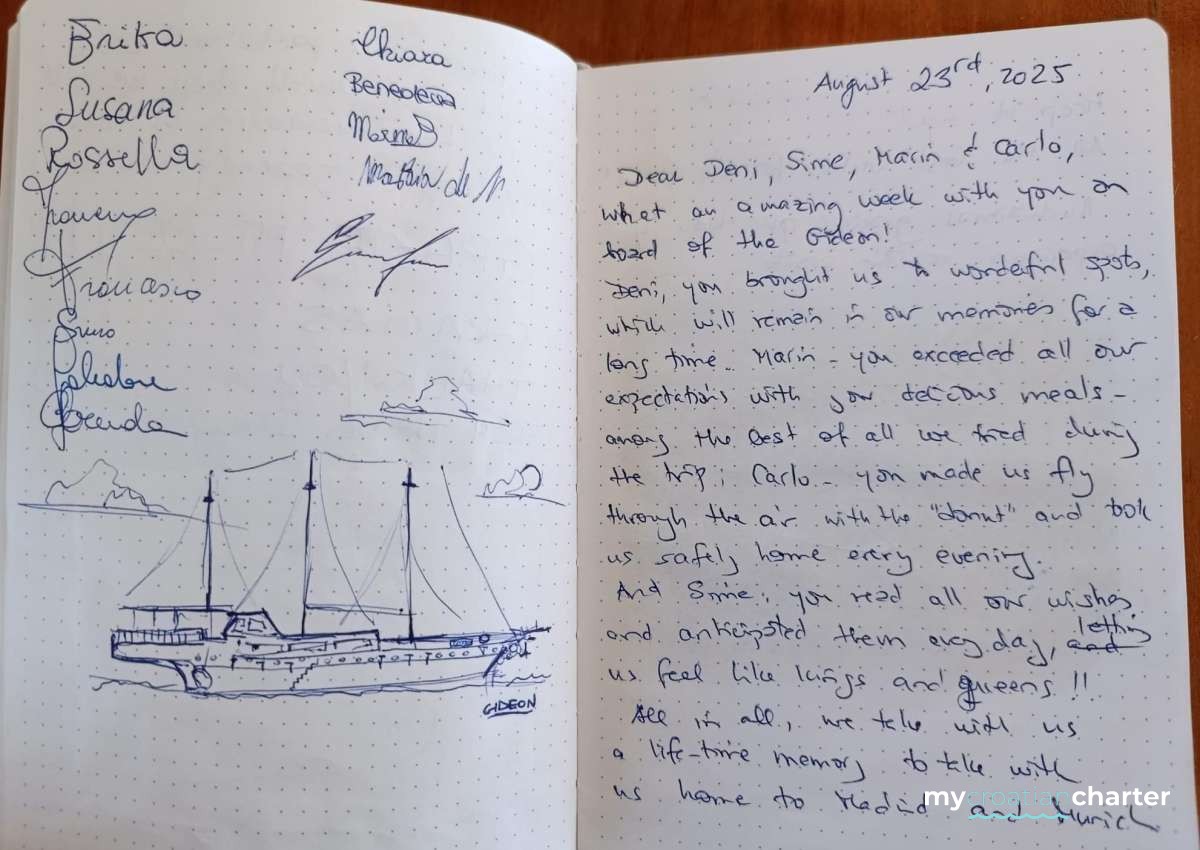 Erika
Susana
Rossella
Francesco
Salvatore
Chiara
Benedetta
Mattia de
GIDEON
August 23rd, 2025
Dear Deni, Sime, Marin & Carlo,
what an amazing week with you on
board of the Gideon!
Deni, you brought us to wonderful spots,
which will remain in our memories for a
long time. Marin - you exceeded all our
expectations with your delicous meals -
among the best of all we tried during
the trip; Carlo - you made us fly
through the air with the "donut" and took
us safely home every evening.
And Sime, you read all our wishes
and anticipated them every day, and letting
us feel like kings and queens!!
All in all, we take with us
a life-time memory to take with
us home to Madrid and Munich
mycroatiancharter